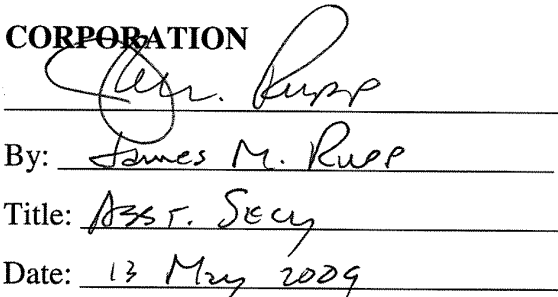 CORPORATION
Jam. Rupp
By: James M. Rupp
Title: Asst. Secy
Date: 13 May 2009